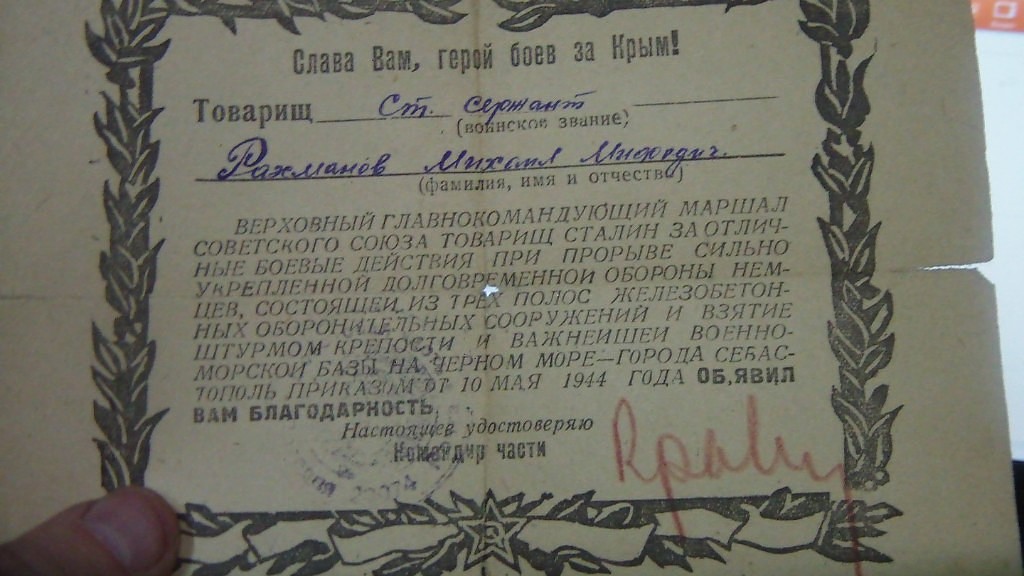 Слава Вам, герой боев за Крым!
Товарищ Ст. сержант
(воинское звание)
Рахманов Михаил
(фамилия, имя и отчество)
ВЕРХОВНЫЙ ГЛАВНОКОМАНДУЮЩИЙ МАРШАЛ
СОВЕТСКОГО СОЮЗА ТОВАРИЩ СТАЛИН ЗА ОТЛИЧ-
НЫЕ БОЕВЫЕ ДЕЙСТВИЯ ПРИ ПРОРЫВЕ СИЛЬНО
УКРЕПЛЕННОЙ ДОЛГОВРЕМЕННОЙ ОБОРОНЫ НЕМ-
ЦЕВ, СОСТОЯЩЕЙ ИЗ ТРЕХ ПОЛОС ЖЕЛЕЗОБЕТОН-
НЫХ ОБОРОНИТЕЛЬНЫХ СООРУЖЕНИЙ И ВЗЯТИЕ
ШТУРМОМ КРЕПОСТИ И ВАЖНЕЙШЕЙ ВОЕННО-
МОРСКОЙ БАЗЫ НА ЧЕРНОМ МОРЕ—ГОРОДА СЕВАС-
ТОПОЛЬ ПРИКАЗОМ ОТ 10 МАЯ 1944 ГОДА ОБ,ЯВИЛ
ВАМ БЛАГОДАРНОСТЬ.
Настоящее удостоверяю
Командир части